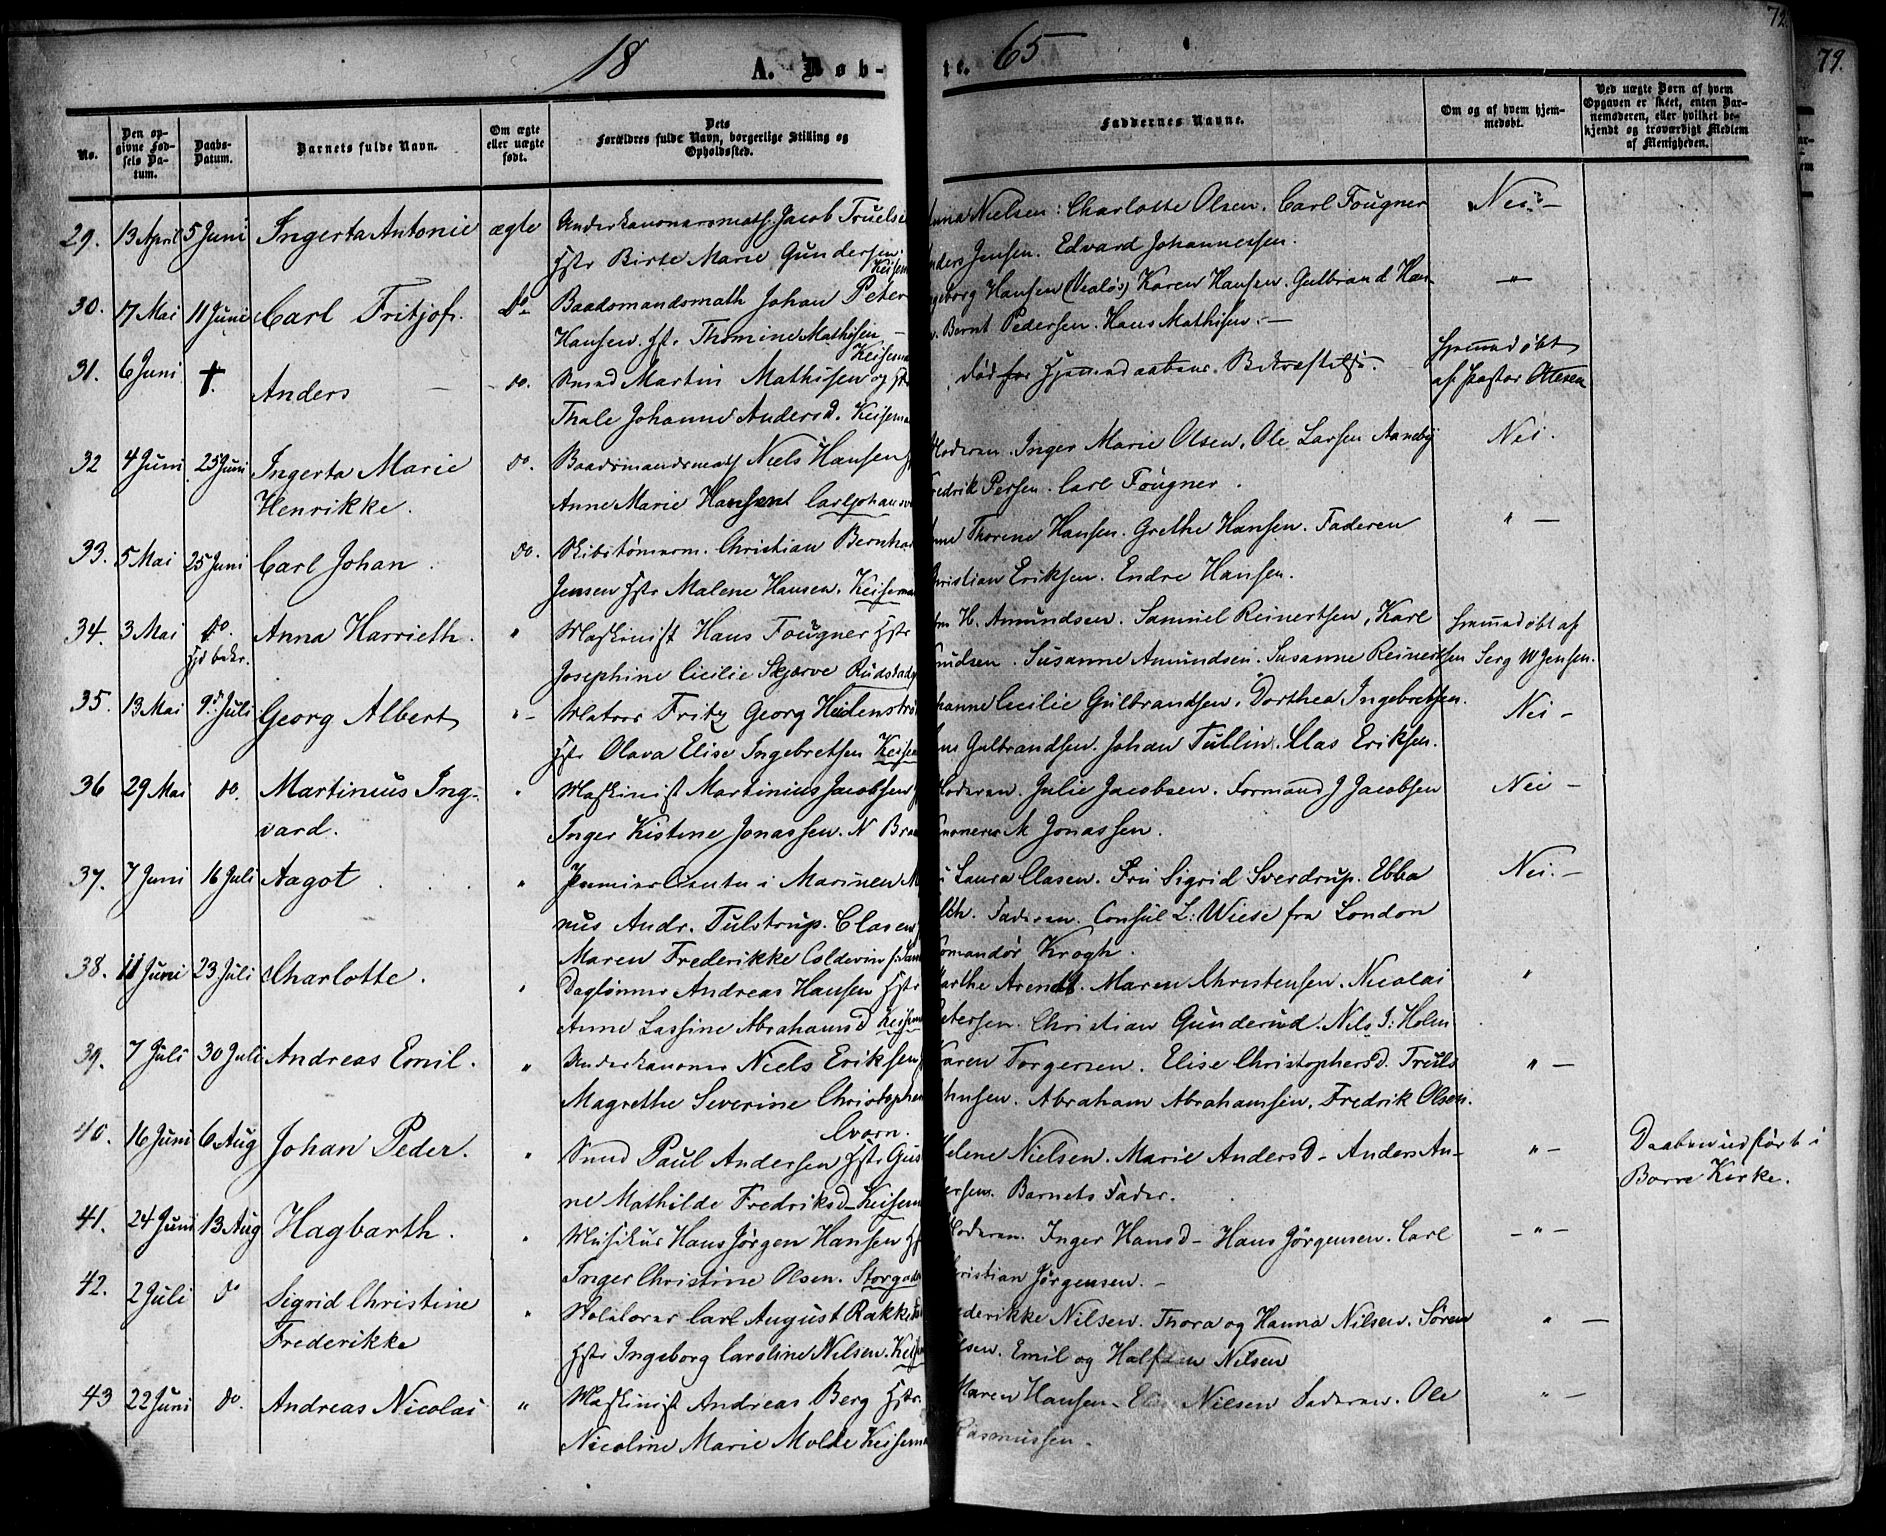 18 A. Døb-
te. 65
72
79.
No.
Den opgivne Fødsels Datum.
Daabs-Datum.
Barnets fulde Navn.
Om ægte eller uægte født.
Dets Forældres fulde Navn, borgerlige Stilling og Opholdssted.
Faddernes Navne.
Om og af hvem hjemmedøbt.
Ved uægte Børn af hvem Opgaven er skeet, enten Barnemoderen, eller hvilket bekjendt og troværdigt Medlem af Menigheden.
29. 13 April 5 Juni Ingerta Antonie ægte Underkanonersmath. Jacob Truelse
Hstr Birte Marie Gundersen. Keisem
Anna Nielsen: Charlotte Olsen. Carl Fougner Nei -
nders Jensen. Edvard Johannessen.
30. 17 Mai 11 Juni Carl Fritjof. do Baadsmandsmath Johan Peter
Hansen. H. Thomine Mathisen - Keisem
geborg Hansen (Vealøs) Karen Hansen. Gulbrand Han- "
n. Bernt Pedersen. Hans Mathisen. -
31. 6 Juni †. Anders do. Smed Martin Mathisen og H
Thale Johanne Andersd. Keisem
død før Hjemmedaabens Bekræftelse. Hjemmedøbt
af Pastor Ottesen
32 4 Juni 25 Juni Ingerta Marie do. Baadsmandsmath Niels Hansen
Henrikke. Anne Marie Hansen Carljohans
Moderen. Inger Marie Olsen. Ole Larsen Aaneby Nei.
redrik Persen. Carl Fougner.
33. 5 Mai 25 Juni Carl Johan. do. Skibstømerm. Christian Bernha
Jensen Hstr Malene Hansen. Keisem
nne Thorene Hansen. Grethe Hansen. Faderen " -
hristian Eriksen. Endre Hansen.
34. 3 Mai do. Anna Harrieth. " Maskinist Hans Fougner Hstr
Hd bekr. Josephine Cicilie Skjørve Rudsdad
H. Amundsen. Samuel Reinertsen, Karl Hjemmedøbt af
nudsen. Susanne Amundsen. Susanne Reinertsen Serg W Jensen.
35. 13 Mai 9. Juli Georg Albert "- Matros Fritz Georg Heidenströ
Hstr Olava Elise Ingebretsen Keisem
hanne Cicilie Gulbrandsen. Dorthea Ingebretsen. Nei -
ns Gulbrandsen. Johan Tullin. Clas Eriksen.
36 29 Mai do. Martinius Ing- " Maskinist Martinius Jacobsen
vard. Inger Kistine Jonassen. N Br
Moderen. Julie Jacobsen. Formand J Jacobsen Nei -
M Jonassen.
37. 7 Juni 16 Juli Aagot. " Premierlieutn i Marinen M
nus Andr. Tulstrup. Clasen
Maren Frederikke Coldevin
Laura Clasen. Fru Sigrid Sverdrup. Ebba Nei. -
Faderen. Consul L: Wiese fra London
omandør Krogh.
38. 11 Juni 23 Juli Charlotte. " Daglønner Andreas Hansen Hstr
Anne Lassine Abrahamsd Keisem
Marthe Arendt. Maren Christensen. Nicolai "
Petersen. Christian Gunderud. Nils J: Holm
39. 7 Juli 30 Juli Andreas Emil. " Underkanoner Niels Eriksen
Magrethe Severine Christophe
Karen Torgersen. Elise Christophersd. Truls " -
hnsen. Abraham Abrahamsen. Fredrik Olsen.
40. 16 Juni 6 Aug Johan Peder. " Smed Paul Andersen Hstr Gus
ne Mathilde Fredriksd - Keisem
elene Nielsen. Marie Andersd - Anders An- " - Daaben udført i
dersen. Barnets Fader. Borre Kirke.
41. 24 Juni 13 Aug Hagbarth. " Musikus Hans Jørgen Hansen H
Inger Christine Olsen. Storgade
Moderen. Inger Hansd - Hans Jørgensen. Carl - " -
hristian Jørgensen. -
42. 2 Juli do Sigrid Christine " Carl August Rakke
Frederikke Hstr Ingeborg Caroline Nilsen. Kei
ederikke Nilsen. Thora og Hanna Nilsen. Søren " -
lsen. Emil og Halfdan Nilsen
43 22 Juni do. Andreas Nicolai " Maskinist Andreas Berg Hstr.
Nicoline Marie Molde Keisem
Maren Hansen - Nilsen Faderen. Ole " -
Rasmussen.